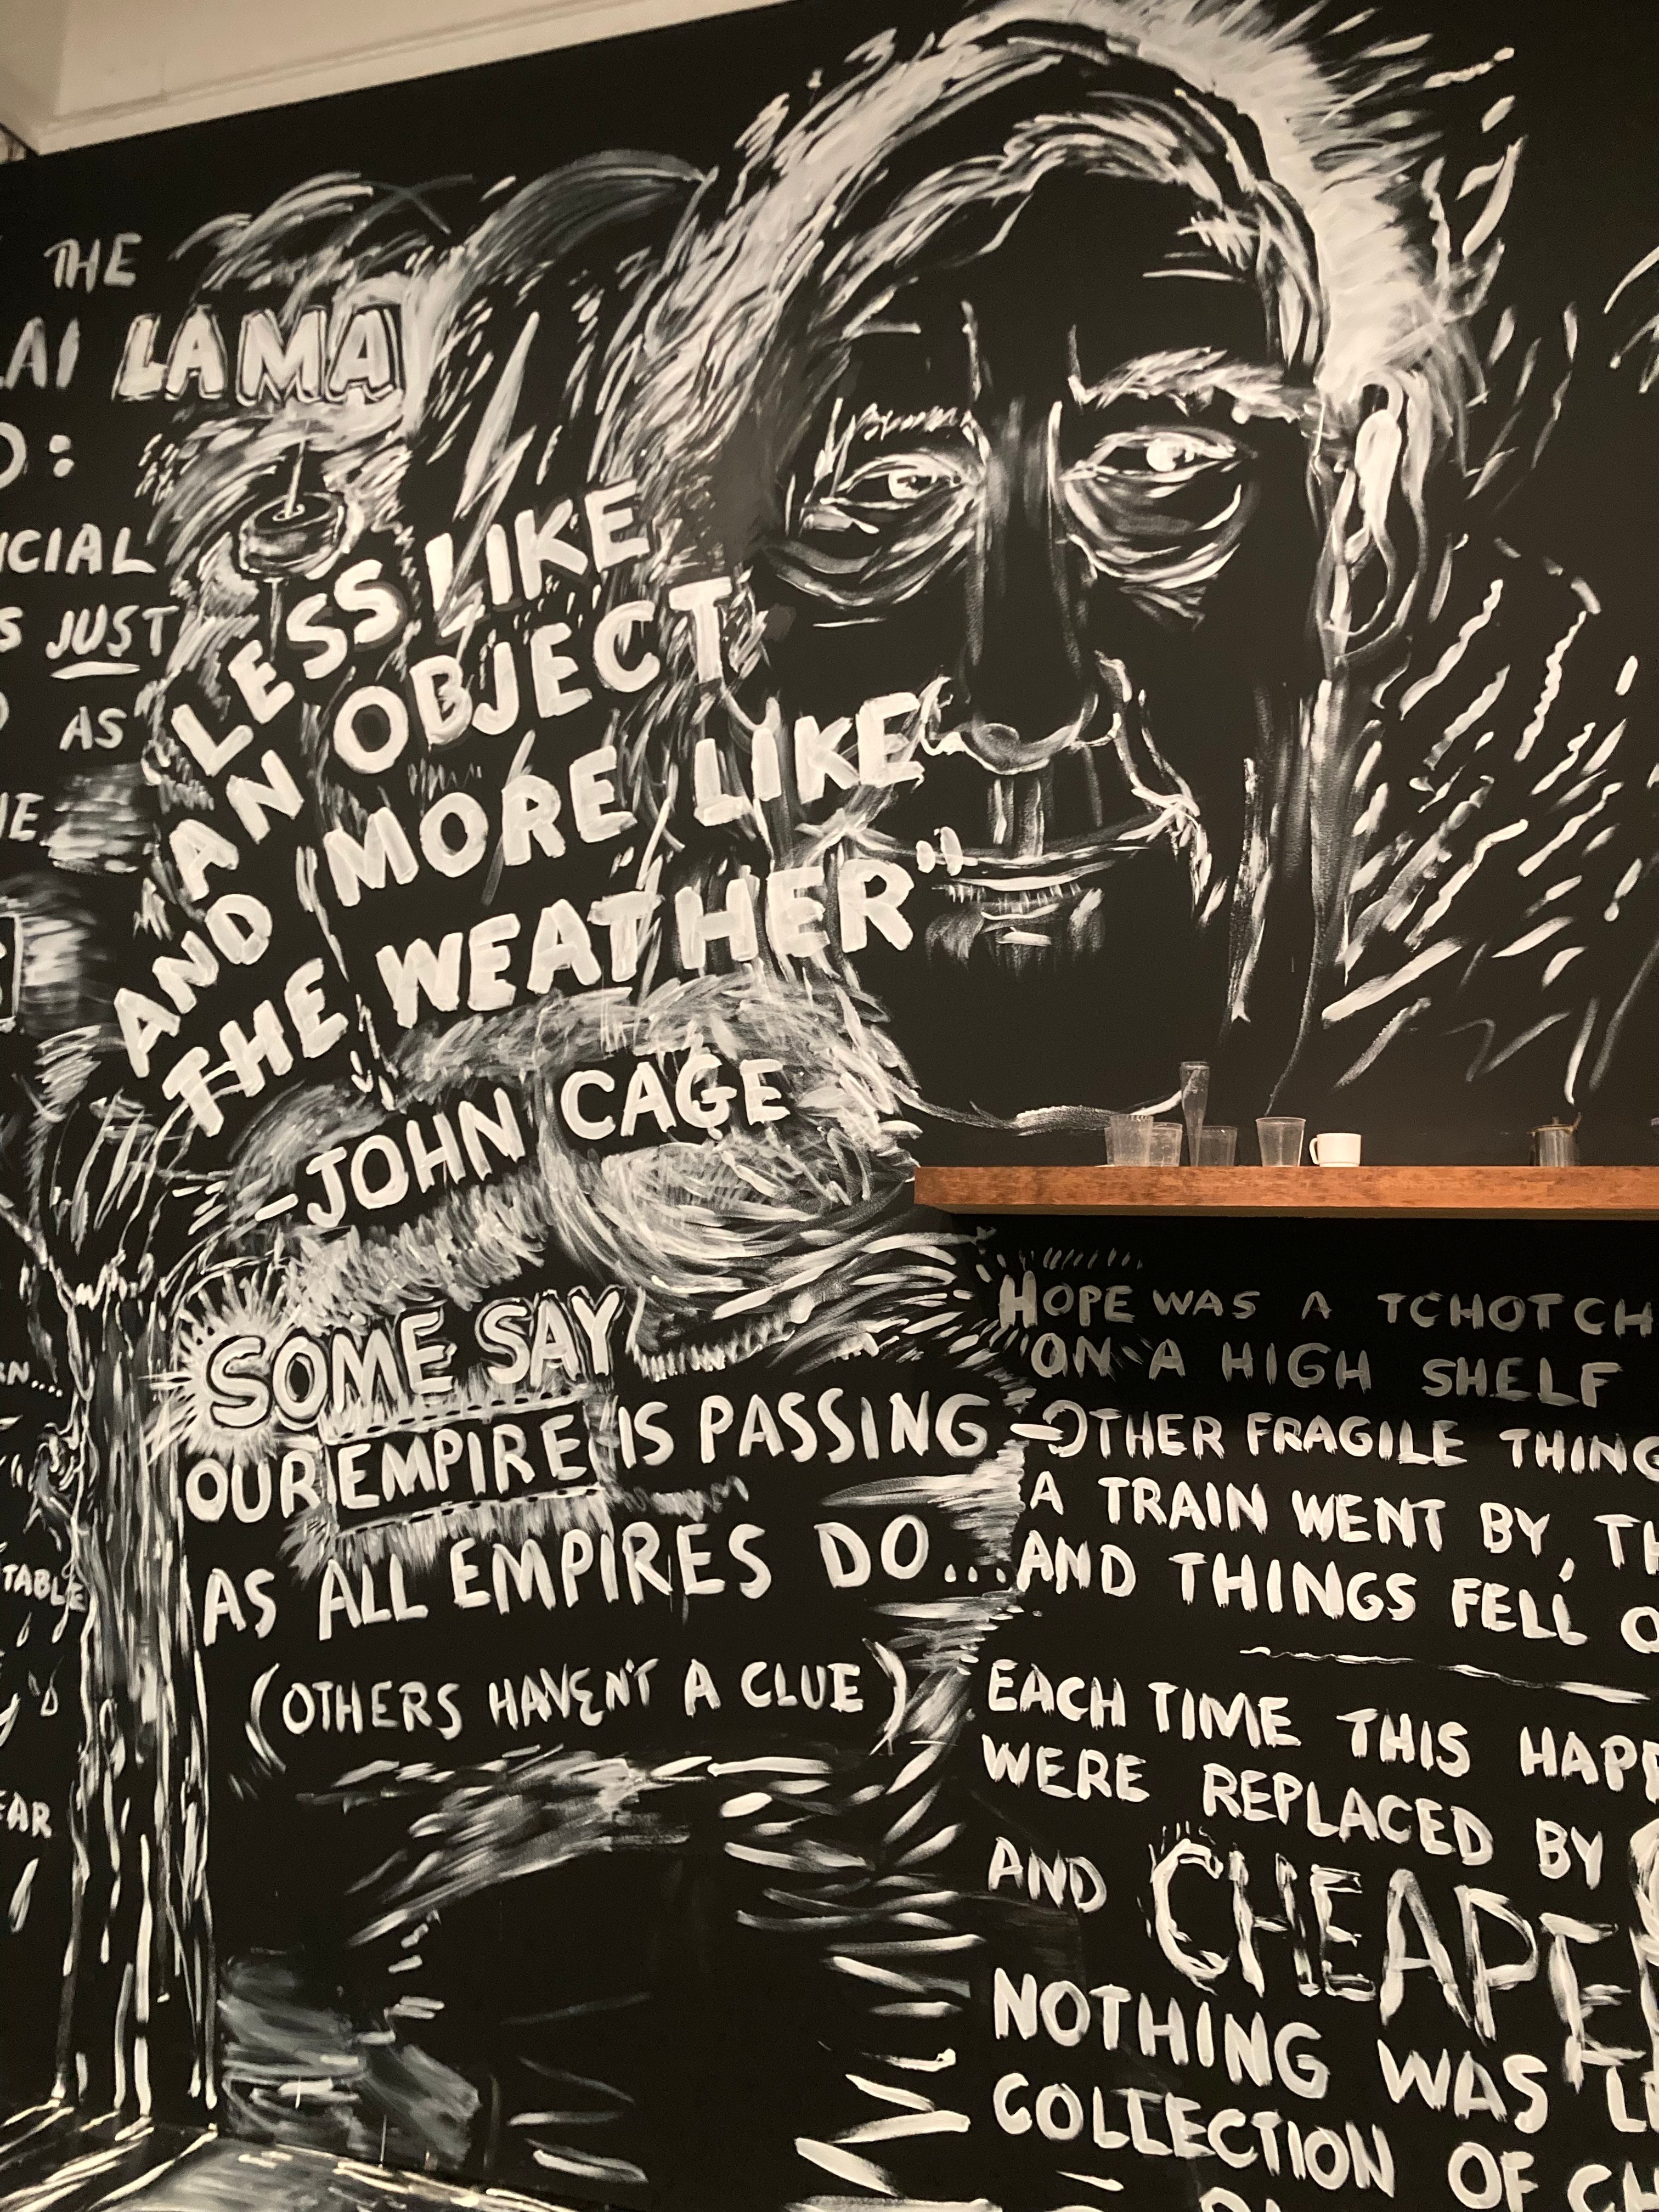 THE
LAMA
JUST
AS
LESS LIKE
AN OBJECT
AND MORE LIKE
THE WEATHER"
-JOHN CAGE
SOME SAY
OUR EMPIRE IS PASSING
AS ALL EMPIRES DO...
(OTHERS HAVEN'T A CLUE)
TABLE
HOPE WAS A TCHOTCH
ON A HIGH SHELF
-OTHER FRAGILE THING
A TRAIN WENT BY, TH
AND THINGS FELL O
EACH TIME THIS HAPP
WERE REPLACED BY
AND CHEAPER
NOTHING WAS LE
COLLECTION OF CH